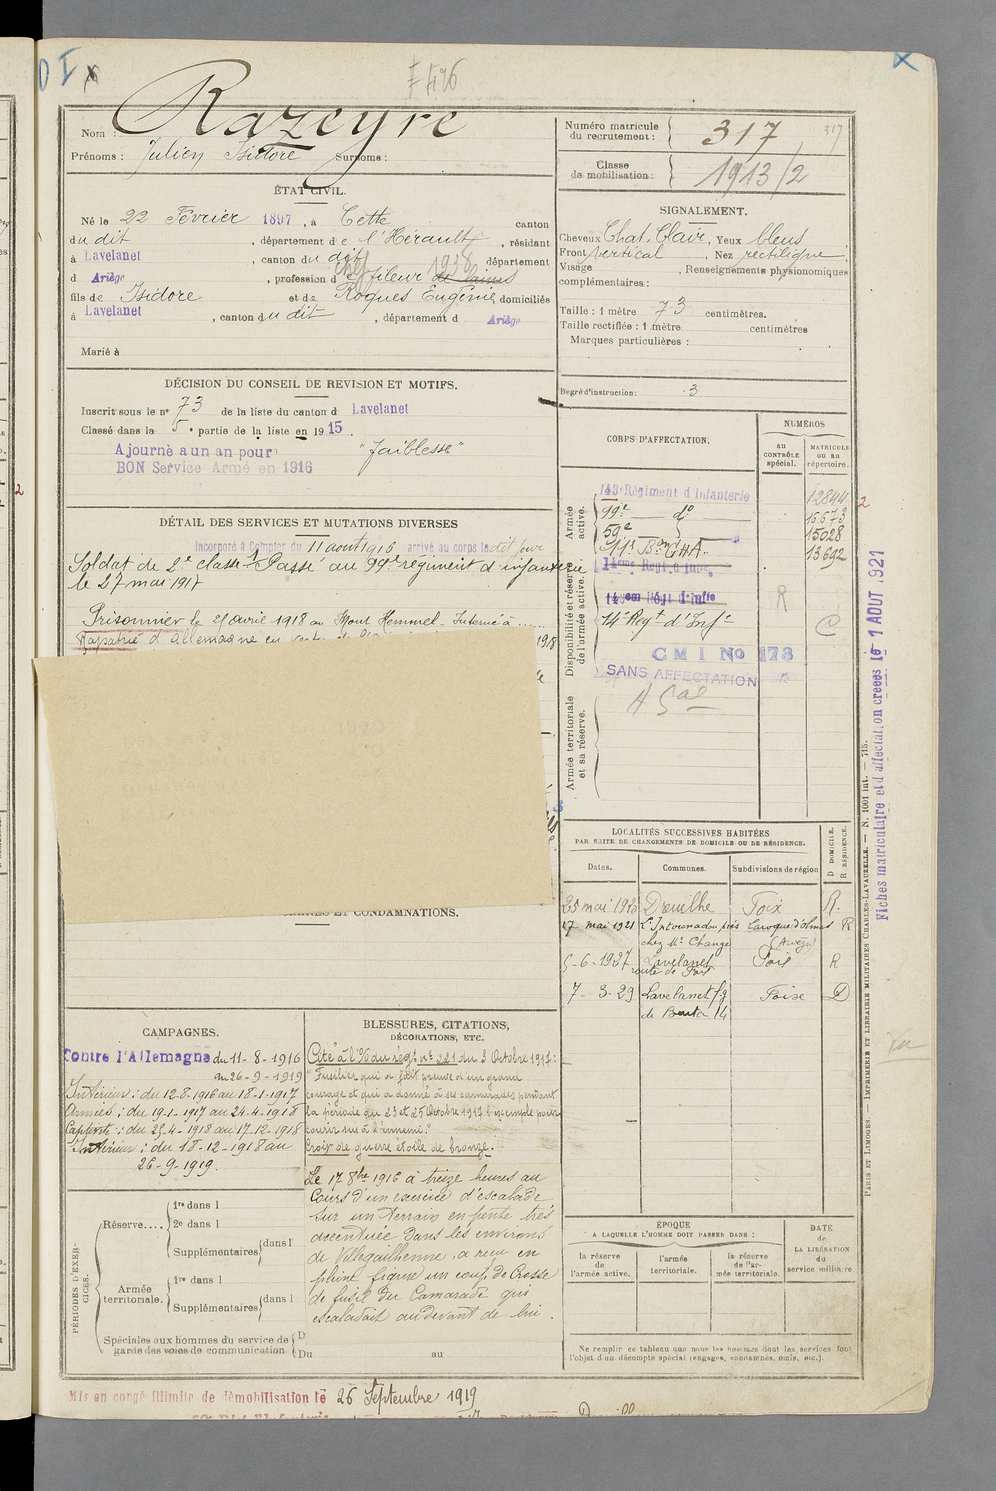 F 426
Nom : Razeyre
Prénoms : Julien Isidore Surnoms :
Numéro matricule
du recrutement : 317
317
Classe
de mobilisation : 1913/2
ÉTAT CIVIL.
Né le 22 Février 1897, à Cette canton
du dit, département de l'Hérault, résidant
à Lavelanet, canton du dit département
d Ariège, profession d fileur de laines
1938
fils de Isidore et de Roques Eugénie, domiciliés
à Lavelanet, canton du dit, département d Ariège
Marié à
SIGNALEMENT.
Cheveux Chat. Clair, Yeux bleus
Front vertical, Nez rectiligne
Visage , Renseignements physionomiques
complémentaires :
Taille : 1 mètre 73 centimètres.
Taille rectifiée : 1 mètre centimètres
Marques particulières :
Degré d'instruction : 3
DÉCISION DU CONSEIL DE REVISION ET MOTIFS.
Inscrit sous le n° 73 de la liste du canton d Lavelanet
Classé dans la 5e partie de la liste en 1915.
Ajourné a un an pour "faiblesse"
BON Service Armé en 1916
DÉTAIL DES SERVICES ET MUTATIONS DIVERSES
Incorporé à Compter du 11 aout 1916 arrivé au corps le dit jour
Soldat de 2e classe. Passé au 99e régiment d'infanterie
le 27 mai 1917
Prisonnier le 25 avril 1918 au Mont Kemmel - Interné à .....
Rapatrié d'Allemagne en 1918
CORPS D'AFFECTATION.
NUMÉROS
AU CONTRÔLE spécial.
MATRICULE ou au répertoire.
Armée active.
143e Régiment d'Infanterie 12844
99e do 16673
59e do 15028
13692
Disponibilité et réserve de l'armée active.
14eme Regt d'Infie
14eme Régt d'Infie
R
14e Regt d'Infie
C
C M I No 178
SANS AFFECTATION
Armée territoriale et sa réserve.
Fiches matriculaire et d'affectation créées le 1 AOUT 1921
LOCALITÉS SUCCESSIVES HABITÉES
PAR SUITE DE CHANGEMENTS DE DOMICILE OU DE RÉSIDENCE.
Dates. Communes. Subdivisions de région D DOMICILE. R RÉSIDENCE.
25 mai 1920 Dreuilhe Foix R.
17 mai 1921 près Laroque d'Olmes R
chez Mr (Ariège)
5-6-1927 Lavelanet Foix R
route de Foix
7-3-29 Lavelanet Foix D
ET CONDAMNATIONS.
CAMPAGNES.
Contre l'Allemagne du 11-8-1916
au 26-9-1919
Intérieur : du 12-8-1916 au 18-1-1917
Armées : du 19-1-1917 au 24-4-1918
Captivité : du 25-4-1918 au 17-12-1918
Intérieur : du 18-12-1918 au
26-9-1919.
BLESSURES, CITATIONS,
DÉCORATIONS, ETC.
Cité à l'O/ du régt n° 221 du 3 Octobre 1917 :
"Fusilier qui a fait preuve d'un grand
courage et qui a donné à ses camarades pendant
la période du 23 et 25 Octobre 1917 l'exemple pour
courir sus à l'ennemi."
Croix de guerre étoile de bronze.
Le 17 8bre 1916 à treize heures au
Cours d'un exercice d'escalade
sur un terrain en pente très
accentuée dans les environs
de Villegailhenne, a reçu en
pleine figure un coup de Crosse
de fusil du Camarade qui
escaladait au devant de lui.
PÉRIODES D'EXERCICES.
Réserve....
1re dans l
2e dans l
Supplémentaires dans l
Armée territoriale.
1re dans l
Supplémentaires dans l
Spéciales aux hommes du service de garde des voies de communication
D
Du au
ÉPOQUE
A LAQUELLE L'HOMME DOIT PASSER DANS :
DATE
DE LA LIBÉRATION
du
service militaire
la réserve de l'armée active.
l'armée territoriale.
la réserve de l'armée territoriale.
Ne remplir ce tableau que pour les hommes dont les services font
l'objet d'un décompte spécial (engagés, condamnés, omis, etc.).
PARIS ET LIMOGES. — IMPRIMERIE ET LIBRAIRIE MILITAIRES CHARLES-LAVAUZELLE. — N. 1001 int. — 715.
Mis en congé illimité de démobilisation le 26 Septembre 1919